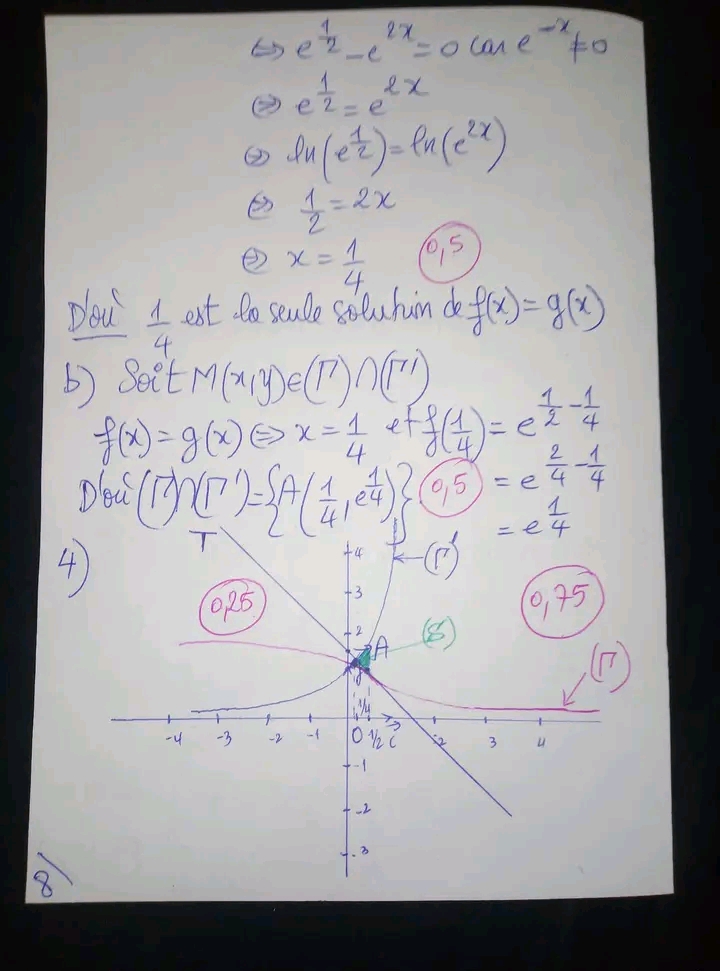 ⇔ e^{1/2} - e^{2x} = 0 car e^{-x} ≠ 0
⇔ e^{1/2} = e^{2x}
⇔ ln(e^{1/2}) = ln(e^{2x})
⇔ 1/2 = 2x
⇔ x = 1/4 0,5
D'où 1/4 est la seule solution de f(x) = g(x)
b) Soit M(x,y)∈(Γ)∩(Γ')
f(x) = g(x) ⇔ x = 1/4 et f(1/4) = e^{1/2 - 1/4}
D'où (Γ)∩(Γ') = {A(1/4, e^{1/4})} 0,5 = e^{2/4 - 1/4}
= e^{1/4}
4)
T 4 (Γ')
0,25 3 0,75
2 A (S)
(Γ)
1/4
-4 -3 -2 -1 0 1/2 i 2 3 4
-1
-2
-3
8)